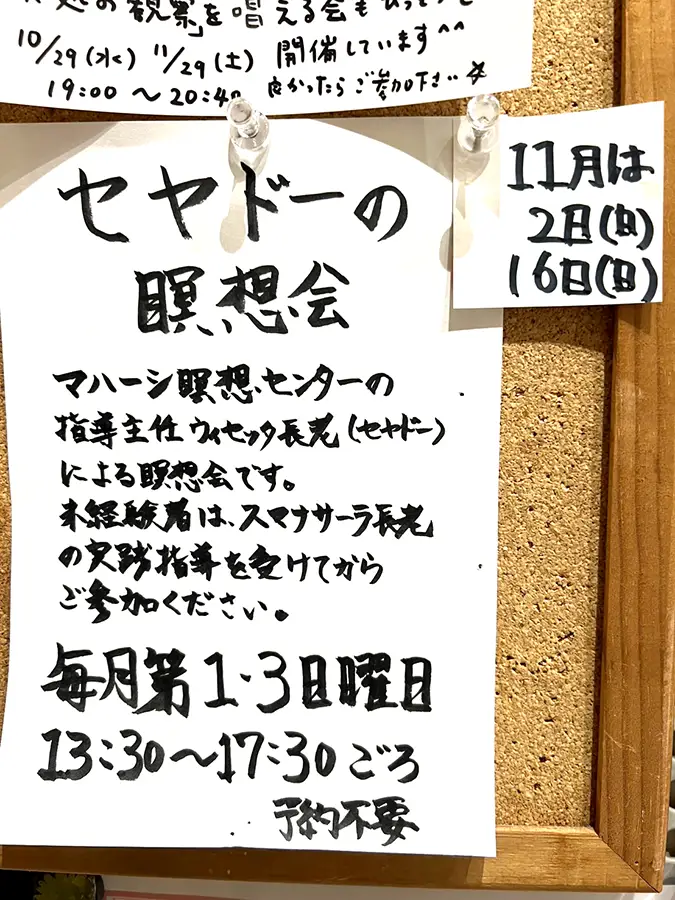 処の観察」を唱える会も
10/29(水) 11/29(土) 開催しています^^
19:00 〜 20:40 良かったらご参加下さい☆
セヤドーの
瞑想会
マハーシ瞑想センターの
指導主任ウィセッタ長老(セヤドー)
による瞑想会です。
未経験者は、スマナサーラ長老
の実践指導を受けてから
ご参加ください。
毎月第1・3日曜日
13:30〜17:30ごろ
予約不要
11月は
2日(日)
16日(日)